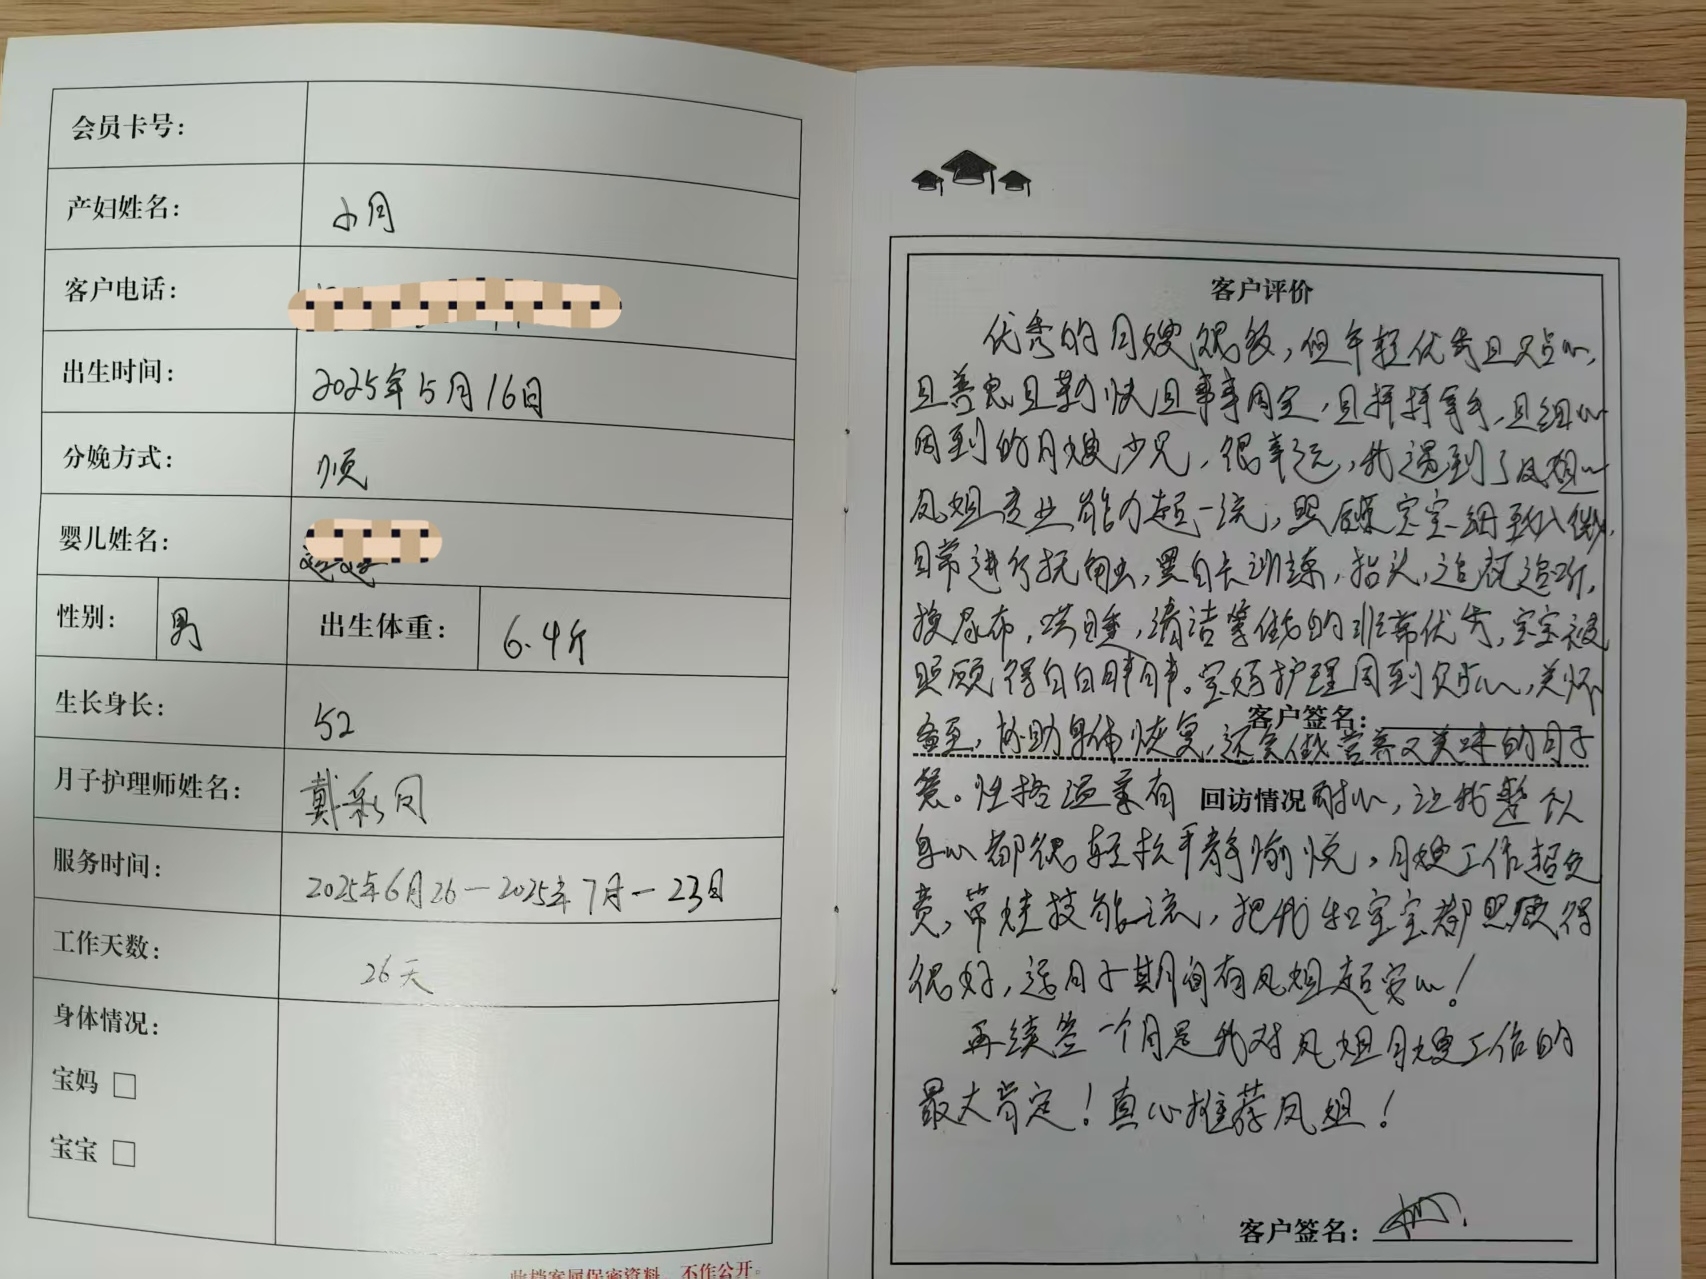 会员卡号：
产妇姓名： 小月
客户电话：
出生时间： 2025年5月16日
分娩方式： 顺
婴儿姓名：
性别： 男 出生体重： 6.4斤
生长身长： 52
月子护理师姓名： 戴彩凤
服务时间： 2025年6月26—2025年7月—23日
工作天数： 26天
身体情况：
宝妈 □
宝宝 □
此档案属保密资料，不作公开。
客户评价
优秀的月嫂很多，但年轻优秀且贴心，
且善良且勤快且事事周全，且样样拿手，且细心
周到的月嫂少见，很幸运，我遇到了凤姐～
凤姐专业能力超一流，照顾宝宝细致入微，
日常进行抚触，黑白卡训练，抬头，追视追听，
换尿布，哄睡，清洁等做的非常优秀，宝宝被
照顾得白白胖胖。宝妈护理周到贴心，关怀
客户签名：
备至，协助身体恢复，还会做营养又美味的月子
餐。性格温柔有 回访情况 耐心，让我整个人
身心都很轻松平静愉悦，月嫂工作超负
责，带娃技能一流，把我和宝宝都照顾得
很好，这月子期间有凤姐超安心！
再续签一个月是我对凤姐月嫂工作的
最大肯定！真心推荐凤姐！
客户签名：